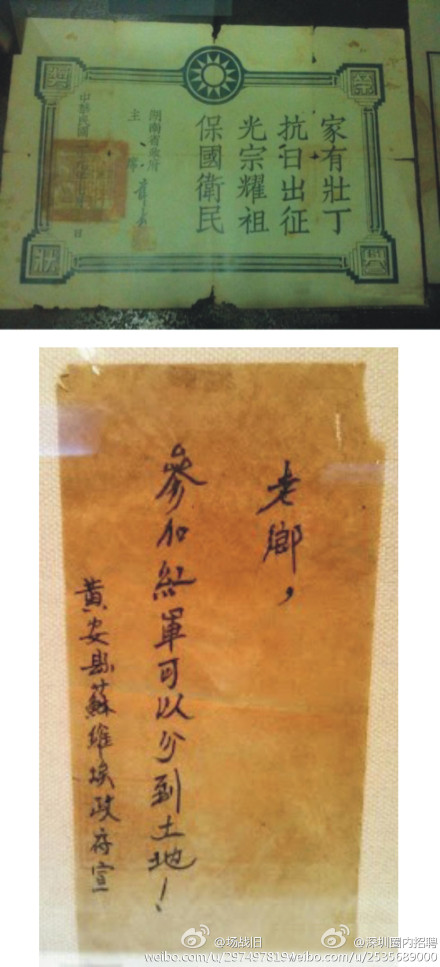 榮
獎
狀
家有壯丁
抗日出征
光宗耀祖
保國衛民
湖南省政府
主席
中華民國
日
老鄉，
參加紅軍可以分到土地！
黃安縣蘇維埃政府宣
@场战旧 @深圳圈内招聘
weibo.com/u/297497819weibo.com/u/2535689000